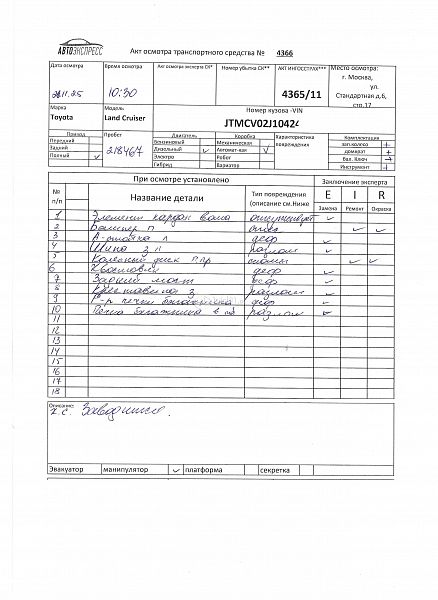 АВТОЭКСПРЕСС
Акт осмотра транспортного средства № 4366
Дата осмотра Время осмотра Акт осмотра эксперта СК* Номер убытка СК** АКТ ИНГОССТРАХ*** Место осмотра:
г. Москва,
ул.
Стандартная д.6,
стр.17
10:30 4365/11
Марка Модель Номер кузова -VIN
Toyota Land Cruiser JTMCV02J10424
Привод Пробег Двигатель Коробка Характеристика повреждения Комплектация
Передний Бензиновый Механическая зап.колесо +
Задний 218467 Дизельный ✓ Автомат-кая ✓ домкрат +
Полный ✓ Электро Робот бал. Ключ +
Гибрид Вариатор Инструмент +
При осмотре установлено Заключение эксперта
№ п/п Название детали Тип повреждения (описание см.Ниже E I R
Замена Ремонт Окраска
1 Элемент кардан вала отсутствует ✓
2 Бампер п ✓ ✓
3 А-стойка л деф ✓
4 Шина з л разлом ✓
5 Колесный диск ппр сколы ✓ ✓
6 деф ✓
7 Задний мост деф ✓
8 Крестовина з разлом ✓
9 деф ✓
10 Петля багажника в разлом ✓
11
12
13
14
15
16
17
18
Описание:
х.с. Заводится.
Эвакуатор манипулятор ✓ платформа секретка